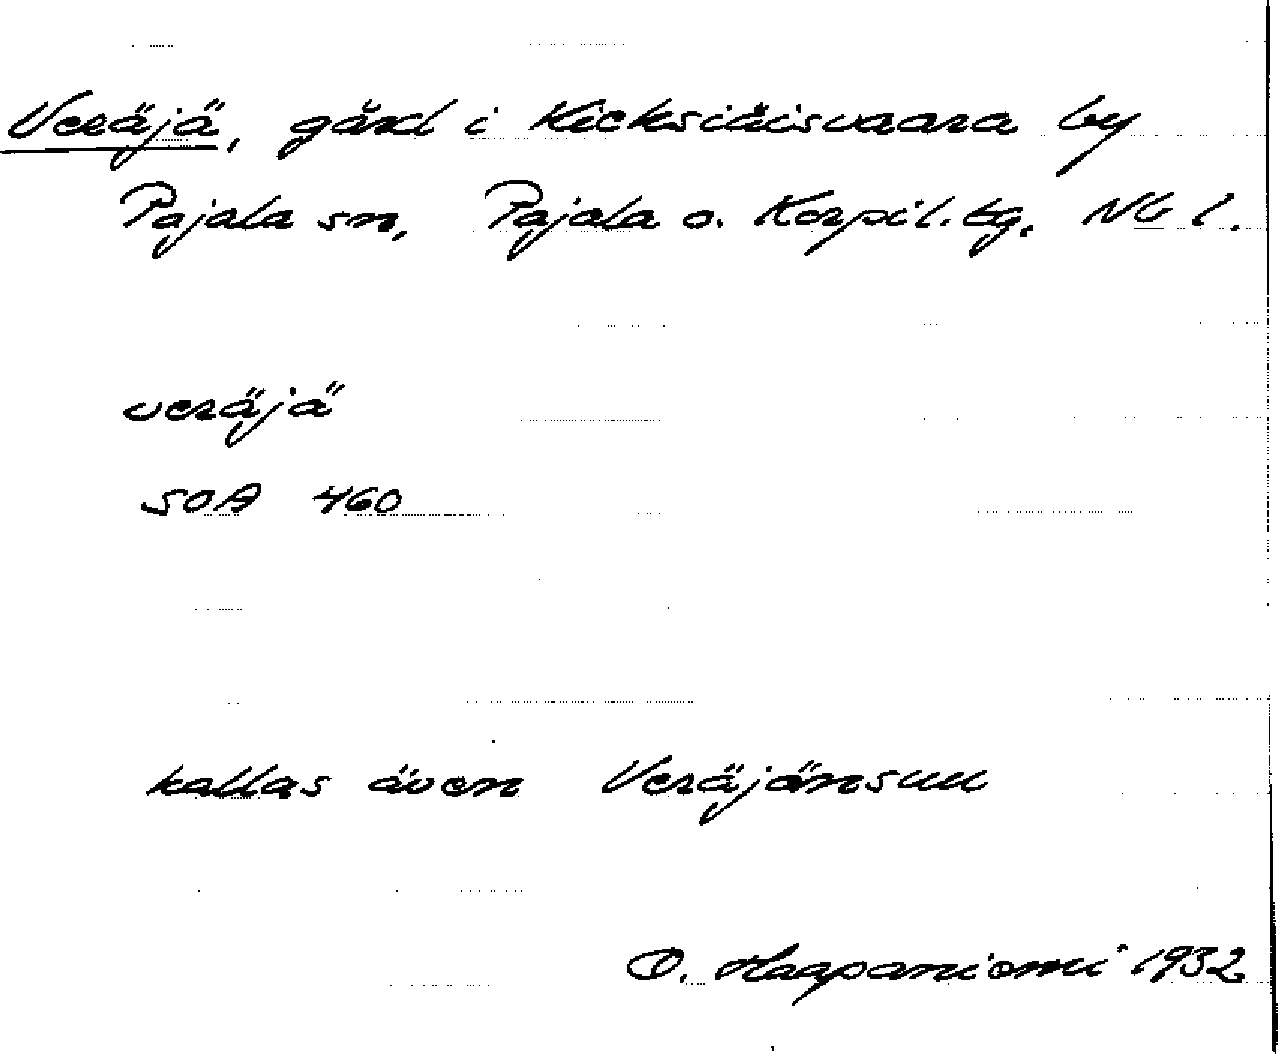 Veräjä, gård i Kieksiäisvaara by
Pajala sn, Pajala o. Korpil. tg. Nb l.
veräjä
SOA 460
kallas även Veräjänsuu
O. Haapaniemi 1932